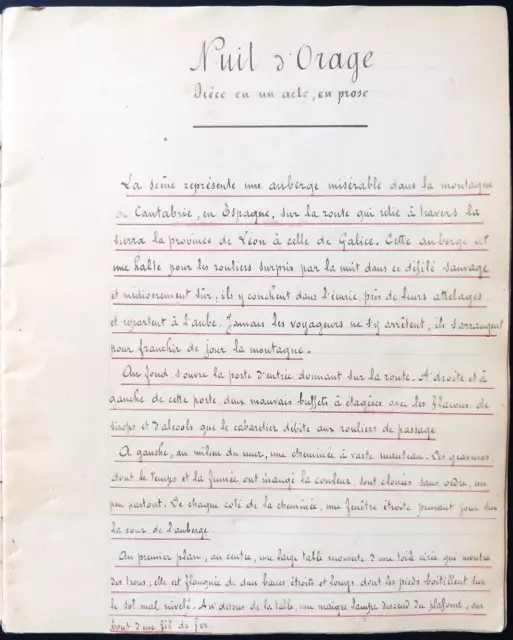 Nuit d'Orage
Pièce en un acte, en prose
La scène représente une auberge misérable dans la montagne
de Cantabrie, en Espagne, sur la route qui relie à travers la
sierra la province de Léon à celle de Galice. Cette auberge est
une halte pour les rouliers surpris par la nuit dans ce défilé sauvage
et médiocrement sûr, ils y couchent dans l'écurie, près de leurs attelages
et repartent à l'aube. Jamais les voyageurs ne s'y arrêtent, ils s'arrangent
pour franchir de jour la montagne.
Au fond, s'ouvre la porte d'entrée, donnant sur la route. A droite et à
gauche de cette porte, deux mauvais buffets à étagères avec les flacons de
sirops et d'alcools que le cabaretier débite aux rouliers de passage
A gauche, au milieu du mur, une cheminée à vaste manteau. Des gravures,
dont le temps et la fumée ont mangé la couleur, sont clouées sans ordre, un
peu partout. De chaque coté de la cheminée, une fenêtre étroite prenant jour sur
la cour de l'auberge.
Au premier plan, au centre, une large table recouverte d'une toile cirée qui montre
des trous, elle est flanquée de deux bancs étroits et longs dont les pieds boitillent sur
le sol mal nivelé. Au dessus de la table, une maigre lampe descend du plafond, au
bout d'un fil de fer.